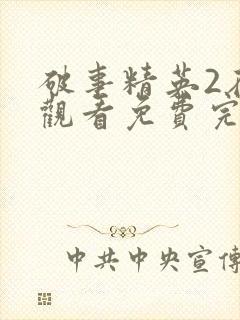 破事精英2在
觀看免費完
中共中央宣傳